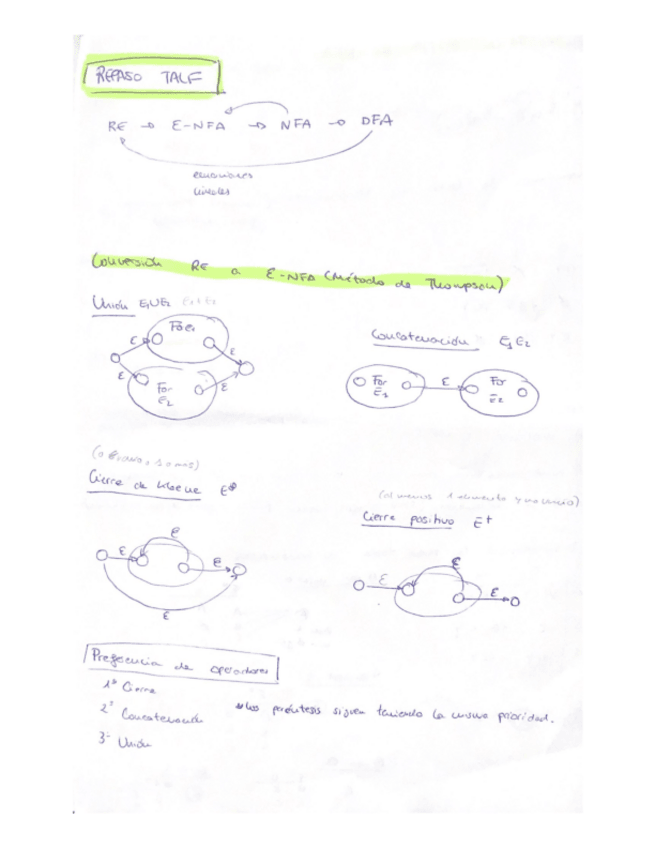 REPASO TALF
RE → ε-NFA → NFA → DFA
ecuaciones
lineales
Conversión RE a ε-NFA (Método de Thompson)
Unión E1UE2 E1+E2
Concatenación E1E2
For E1
ε ε
ε ε
For
E2
For
E1
ε
For
E2
Cierre de kleene E*
(al menos 1 elemento y no vacio)
Cierre positivo E+
ε
ε ε
ε
ε
ε ε
Preferencia de operadores
1º Cierre
2º Concatenación
* Los paréntesis siguen teniendo la misma prioridad.
3º Unión